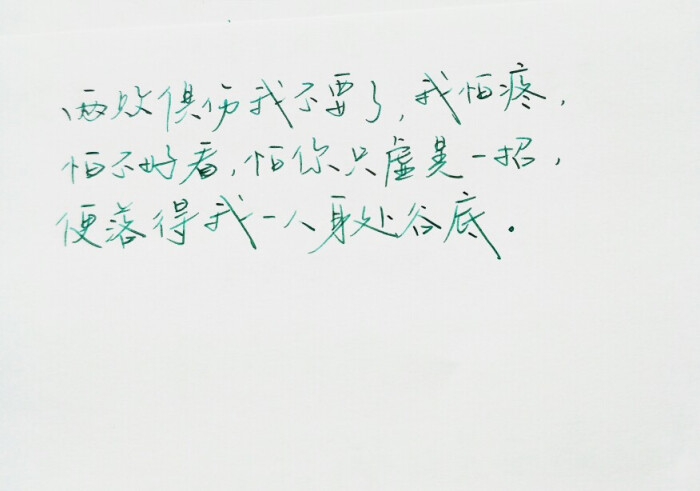 两败俱伤我不要了,我怕疼,
怕不好看,怕你只虚晃一招,
便落得我一人身处谷底.